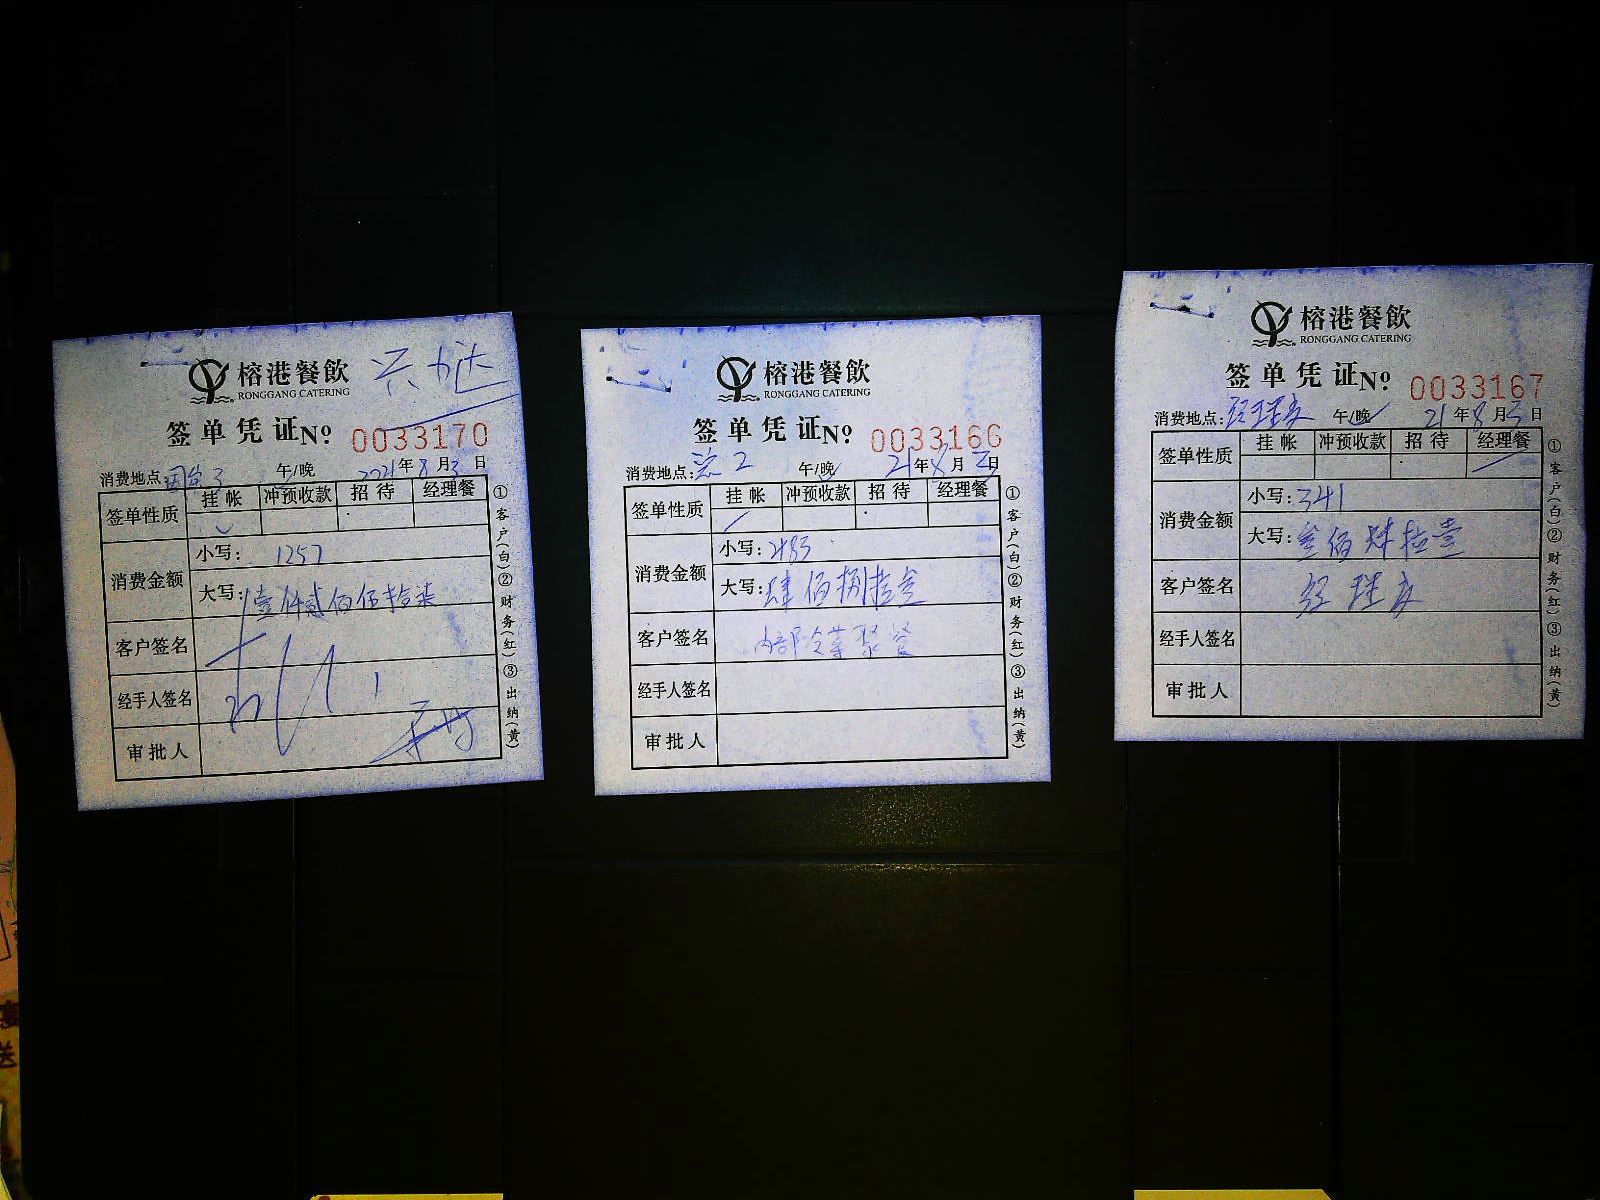 榕港餐飲
RONGGANG CATERING
签单凭证 No: 0033170
消费地点: 午/晚 2021年8月3日
签单性质 挂帐 冲预收款 招待 经理餐
消费金额 小写: 1257
大写: 壹仟贰佰伍拾柒
客户签名
经手人签名
审批人
①客户(白)②财务(红)③出纳(黄)
榕港餐飲
RONGGANG CATERING
签单凭证 No: 0033166
消费地点: 午/晚 21年8月3日
签单性质 挂帐 冲预收款 招待 经理餐
消费金额 小写: 483
大写: 肆佰捌拾叁
客户签名 内部冷菜聚餐
经手人签名
审批人
①客户(白)②财务(红)③出纳(黄)
榕港餐飲
RONGGANG CATERING
签单凭证 No: 0033167
消费地点: 经理 午/晚 21年8月3日
签单性质 挂帐 冲预收款 招待 经理餐
消费金额 小写: 341
大写: 叁佰肆拾壹
客户签名 经理
经手人签名
审批人
①客户(白)②财务(红)③出纳(黄)
送